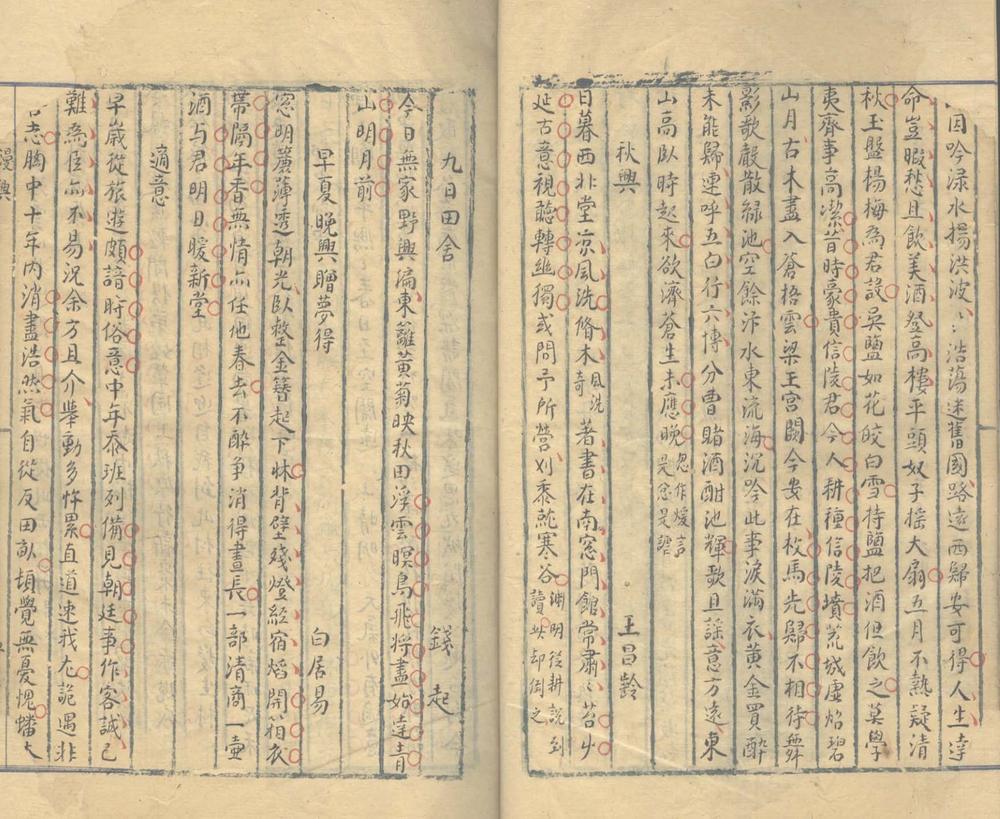 因吟渌水揚洪波〻浩蕩迷舊國路遠西歸安可得人生達
命豈暇愁且飲美酒登高樓平頭奴子摇大扇五月不熱疑清
秋玉盤楊梅為君設吴鹽如花皎白雪持鹽把酒但飲之莫學
夷齊事高潔昔時豪貴信陵君今人耕種信陵墳荒城虚焰碧
山月古木盡入蒼梧雲梁王宫闕今安在枚馬先歸不相待舞
影歌聲散緑池空餘汴水東流海沉吟此事淚滿衣黄金買醉
未能歸連呼五白行六博分曹賭酒酣池輝歌且謡意方遠東
山高臥時起來欲濟蒼生未應晚
秋興 王昌齡
日暮西北堂凉風洗脩木風洗奇著書在南窓門館常肅〻苔少
延古意視聽轉幽獨或問予所營刈黍就寒谷淵明従耕説到讀此却倒之
九日田舎 錢起
今日無家野興偏東籬黄菊映秋田浮雲暝鳥飛将盡始達青
山明月前
早夏晚興贈夢得 白居易
窓明簾薄透朝光臥整金簪起下牀背壁殘燈経宿焰開箱衣
帶隔年香無情亦任他春去不酔争消得晝長一部清商一壷
酒与君明日暖新堂
適意
早歳從旅遊頗諳時俗意中年忝班列備見朝廷事作客誠已
難為臣亦不易況余方且介舉動多忤累直道速我尤詭遇非
志胸中十年内消盡浩然氣自從反田畝頓覺無憂愧蟠大
漫興